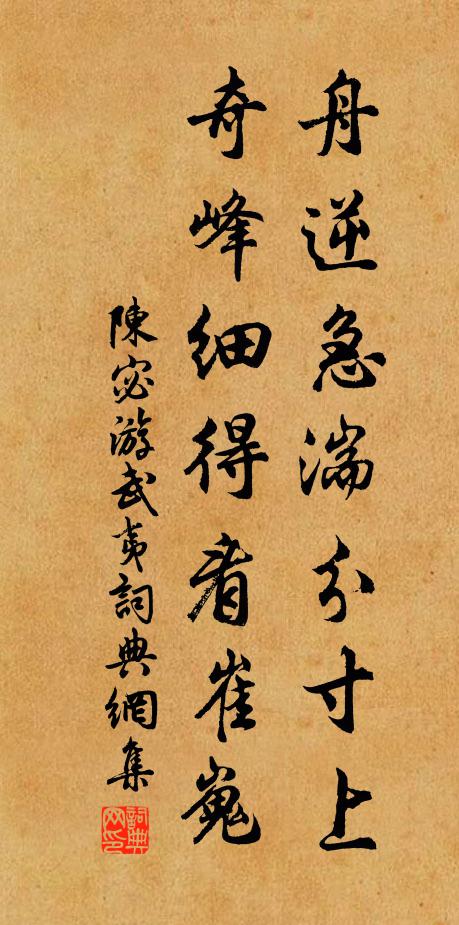 舟逆急湍分寸上
奇峰细得看崔嵬
陳宓游武夷詞典網集
詞典网印